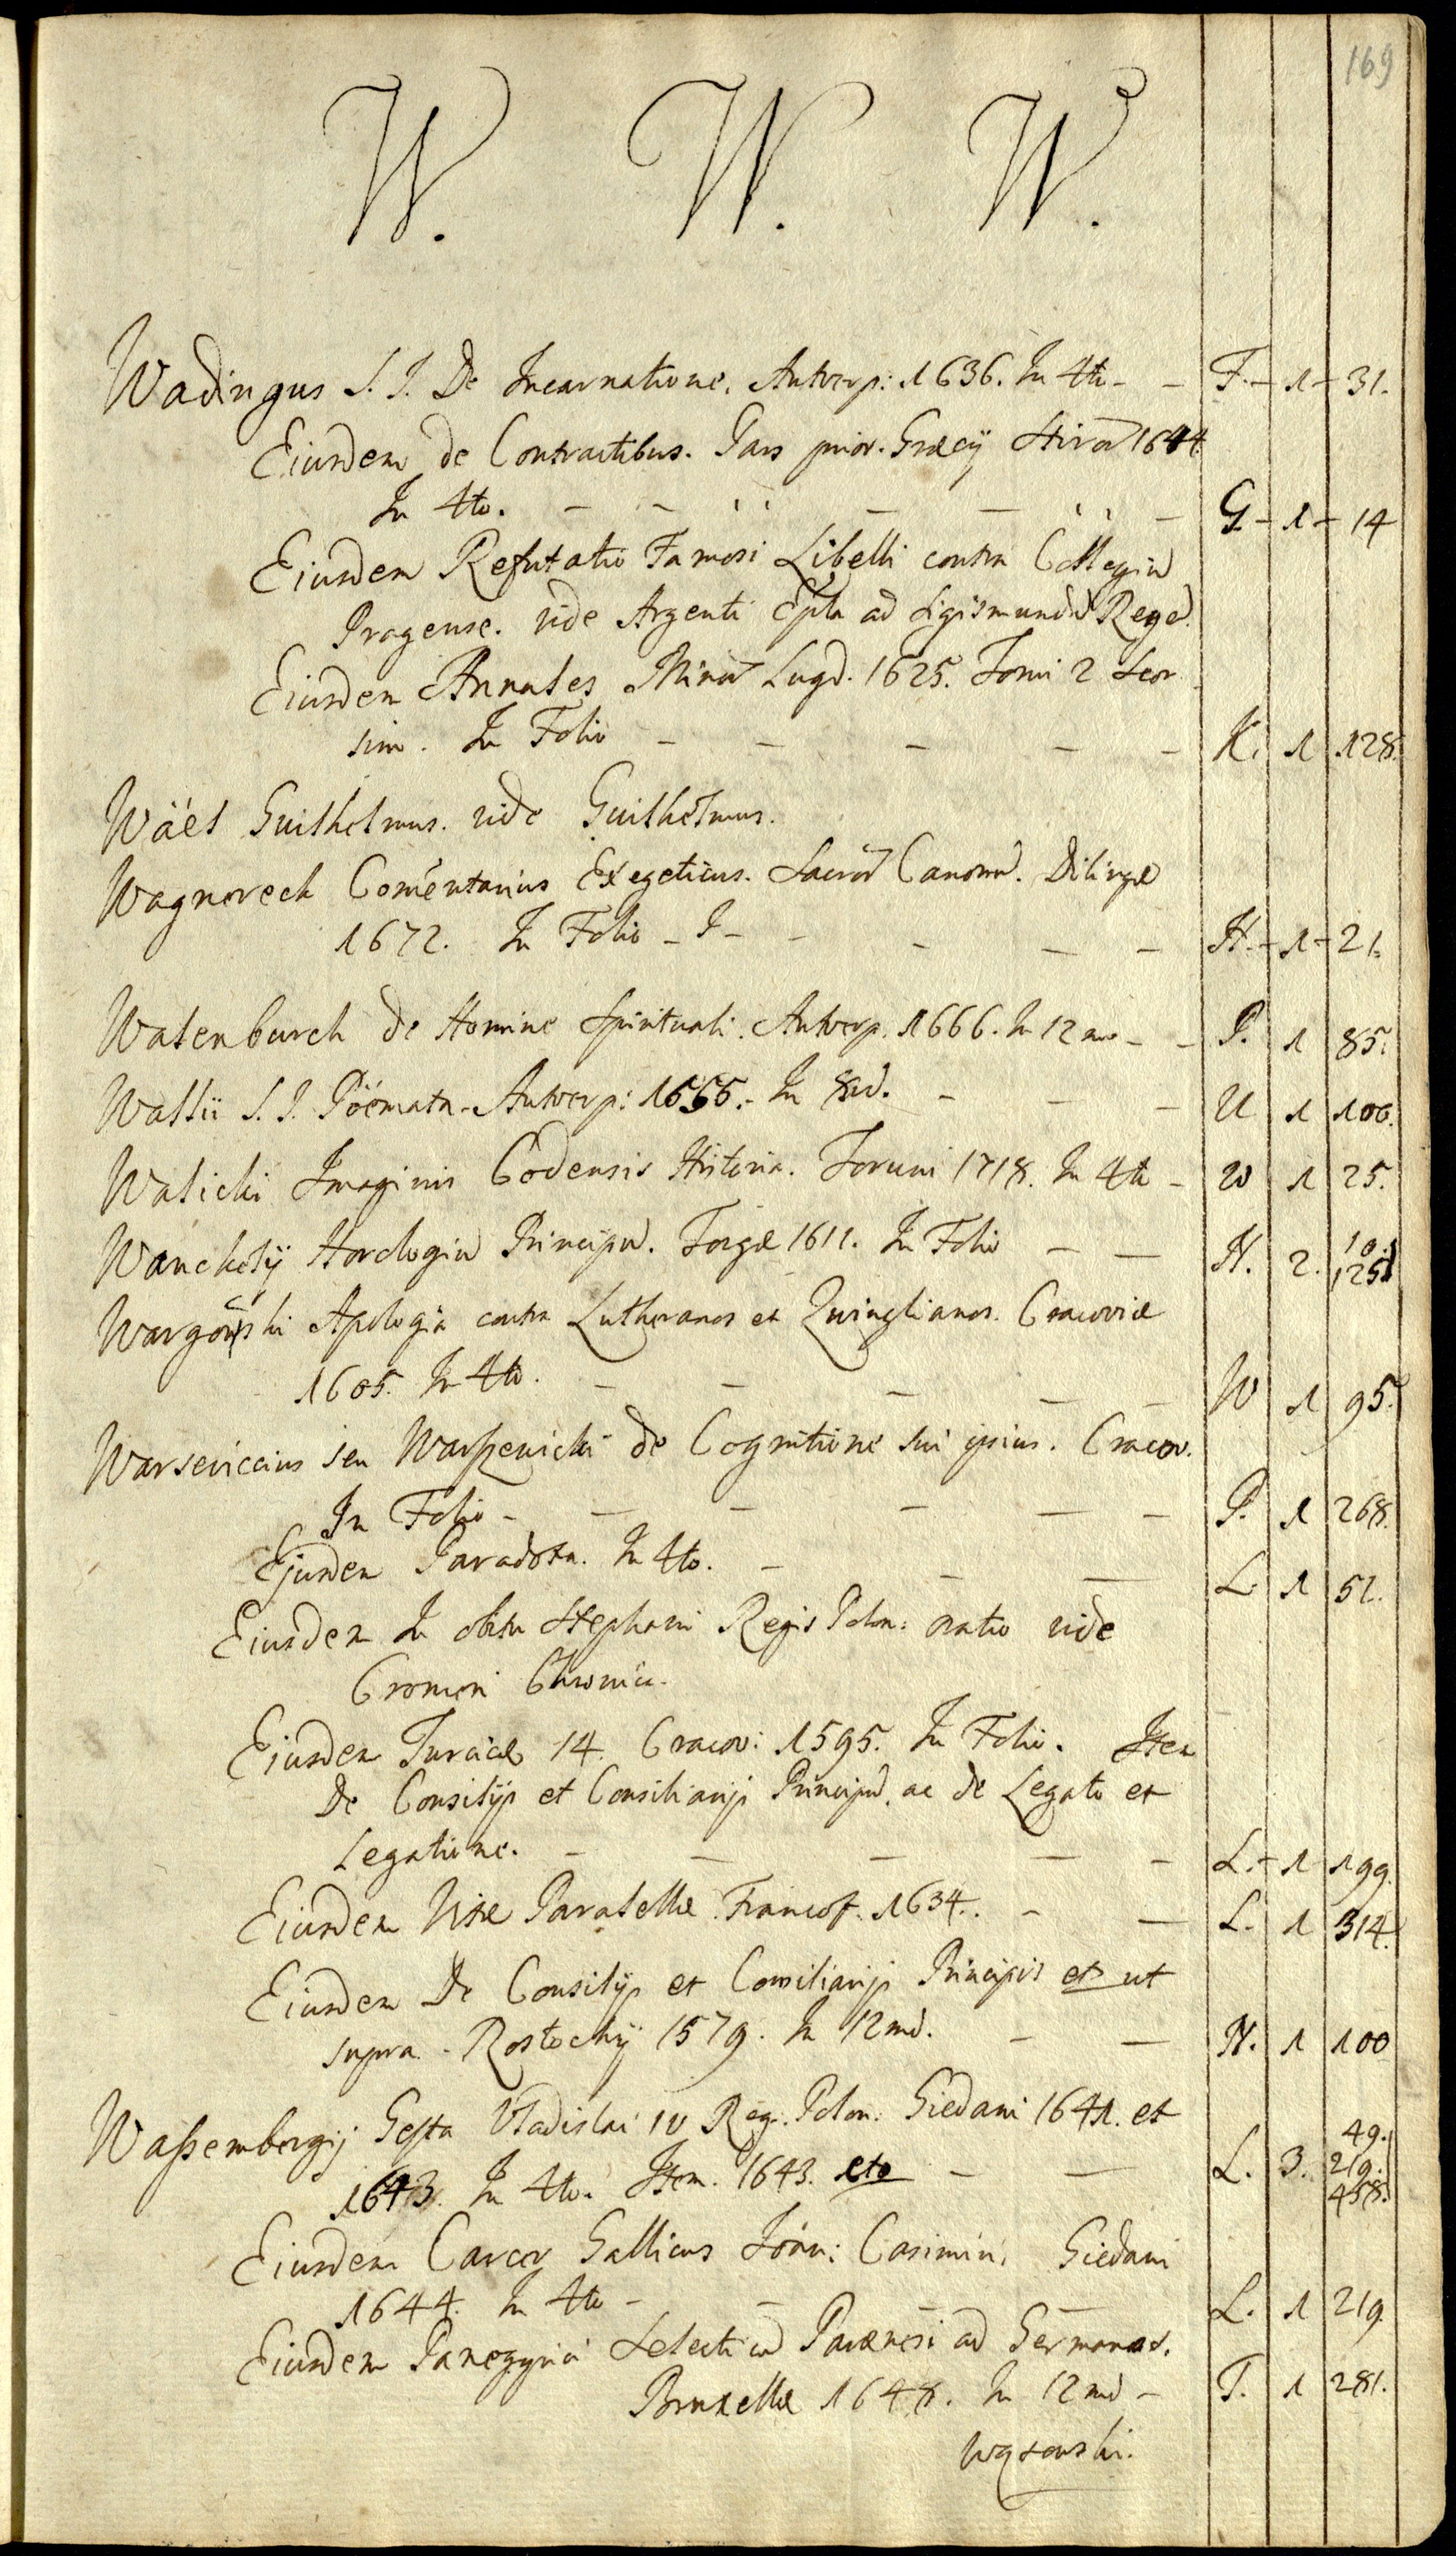 169
W. W. W.
Wadingus S. J. De Incarnatione. Antverp: 1636. In 4to - - F. - 1 - 31.
Eiusdem de Contractibus. Pars prior. Græcÿ Stiræ 1644
In 4to. - - - - - G - 1 - 14
Eiusdem Refutatio Famosi Libelli contra Collegiū
Pragense. vide Argenti Epla ad Sigismundū Regē.
Eiusdem Annales Minorū Lugd. 1625. Tomi 2 Seor
sim. In Folio - - - - - K. 1 128.
Wäel Guilhelmus. vide Guilhelmus.
Wagnereck Com̄entarius Exegeticus. Sacrorū Canonū. Dilingæ
1672. In Folio - - - - - H. - 1 - 21.
Walenburch de Homine Spirituali. Antverp. 1666. In 12mo - - P. 1 85.
Wallii S. J. Pöemata. Antverp: 1656. In 8vo. - - - U 1 106.
Walicki Imaginis Codensis Historia. Toruni 1718. In 4to - W 1 25.
Wanckelÿ Horologiū Principū. Torgæ 1611. In Folio - - H. 2. 10. 125.
Wargocki Apologia contra Lutheranos et Zwinglianos. Cracoviæ
1605. In 4to. - - - - - W 1 95.
Warseviccius seu Warszewicki de Cognitione sui ipsius. Cracov.
In Folio - - - - - P. 1 268.
Ejusdem Paradoxa. In 4to. - - - L. 1 51.
Eiusdem In obitu Stephani Regis Polon: oratio vide
Cromeri Chronica.
Eiusdem Turcicæ 14. Cracov: 1595. In Folio. Item
De Consilÿs et Consiliarijs Principū. ac de Legato et
Legatione. - - - - - L. - 1 199.
Eiusdem Vitæ Parallelæ. Francof. 1634. - - L. 1 314.
Eiusdem De Consilÿs et Consiliarijs Principis et ut
supra. Rostochÿ 1579. In 12mo. - - N. 1 100
Waßembergij Gesta Vladislai IV Reg. Polon: Giedani 1641. et
1643. In 4to. Item. 1643. etc - - L. 3. 49. 219. 458.
Eiusdem Carcer Gallicus Joan: Casimiri. Giedani
1644. In 4to - - - - L. 1 219
Eiusdem Panegyrici Selecti cū Parænesi ad Germanos.
Bruxellæ 1648. In 12mo - T. 1 281.
Wąsowski.